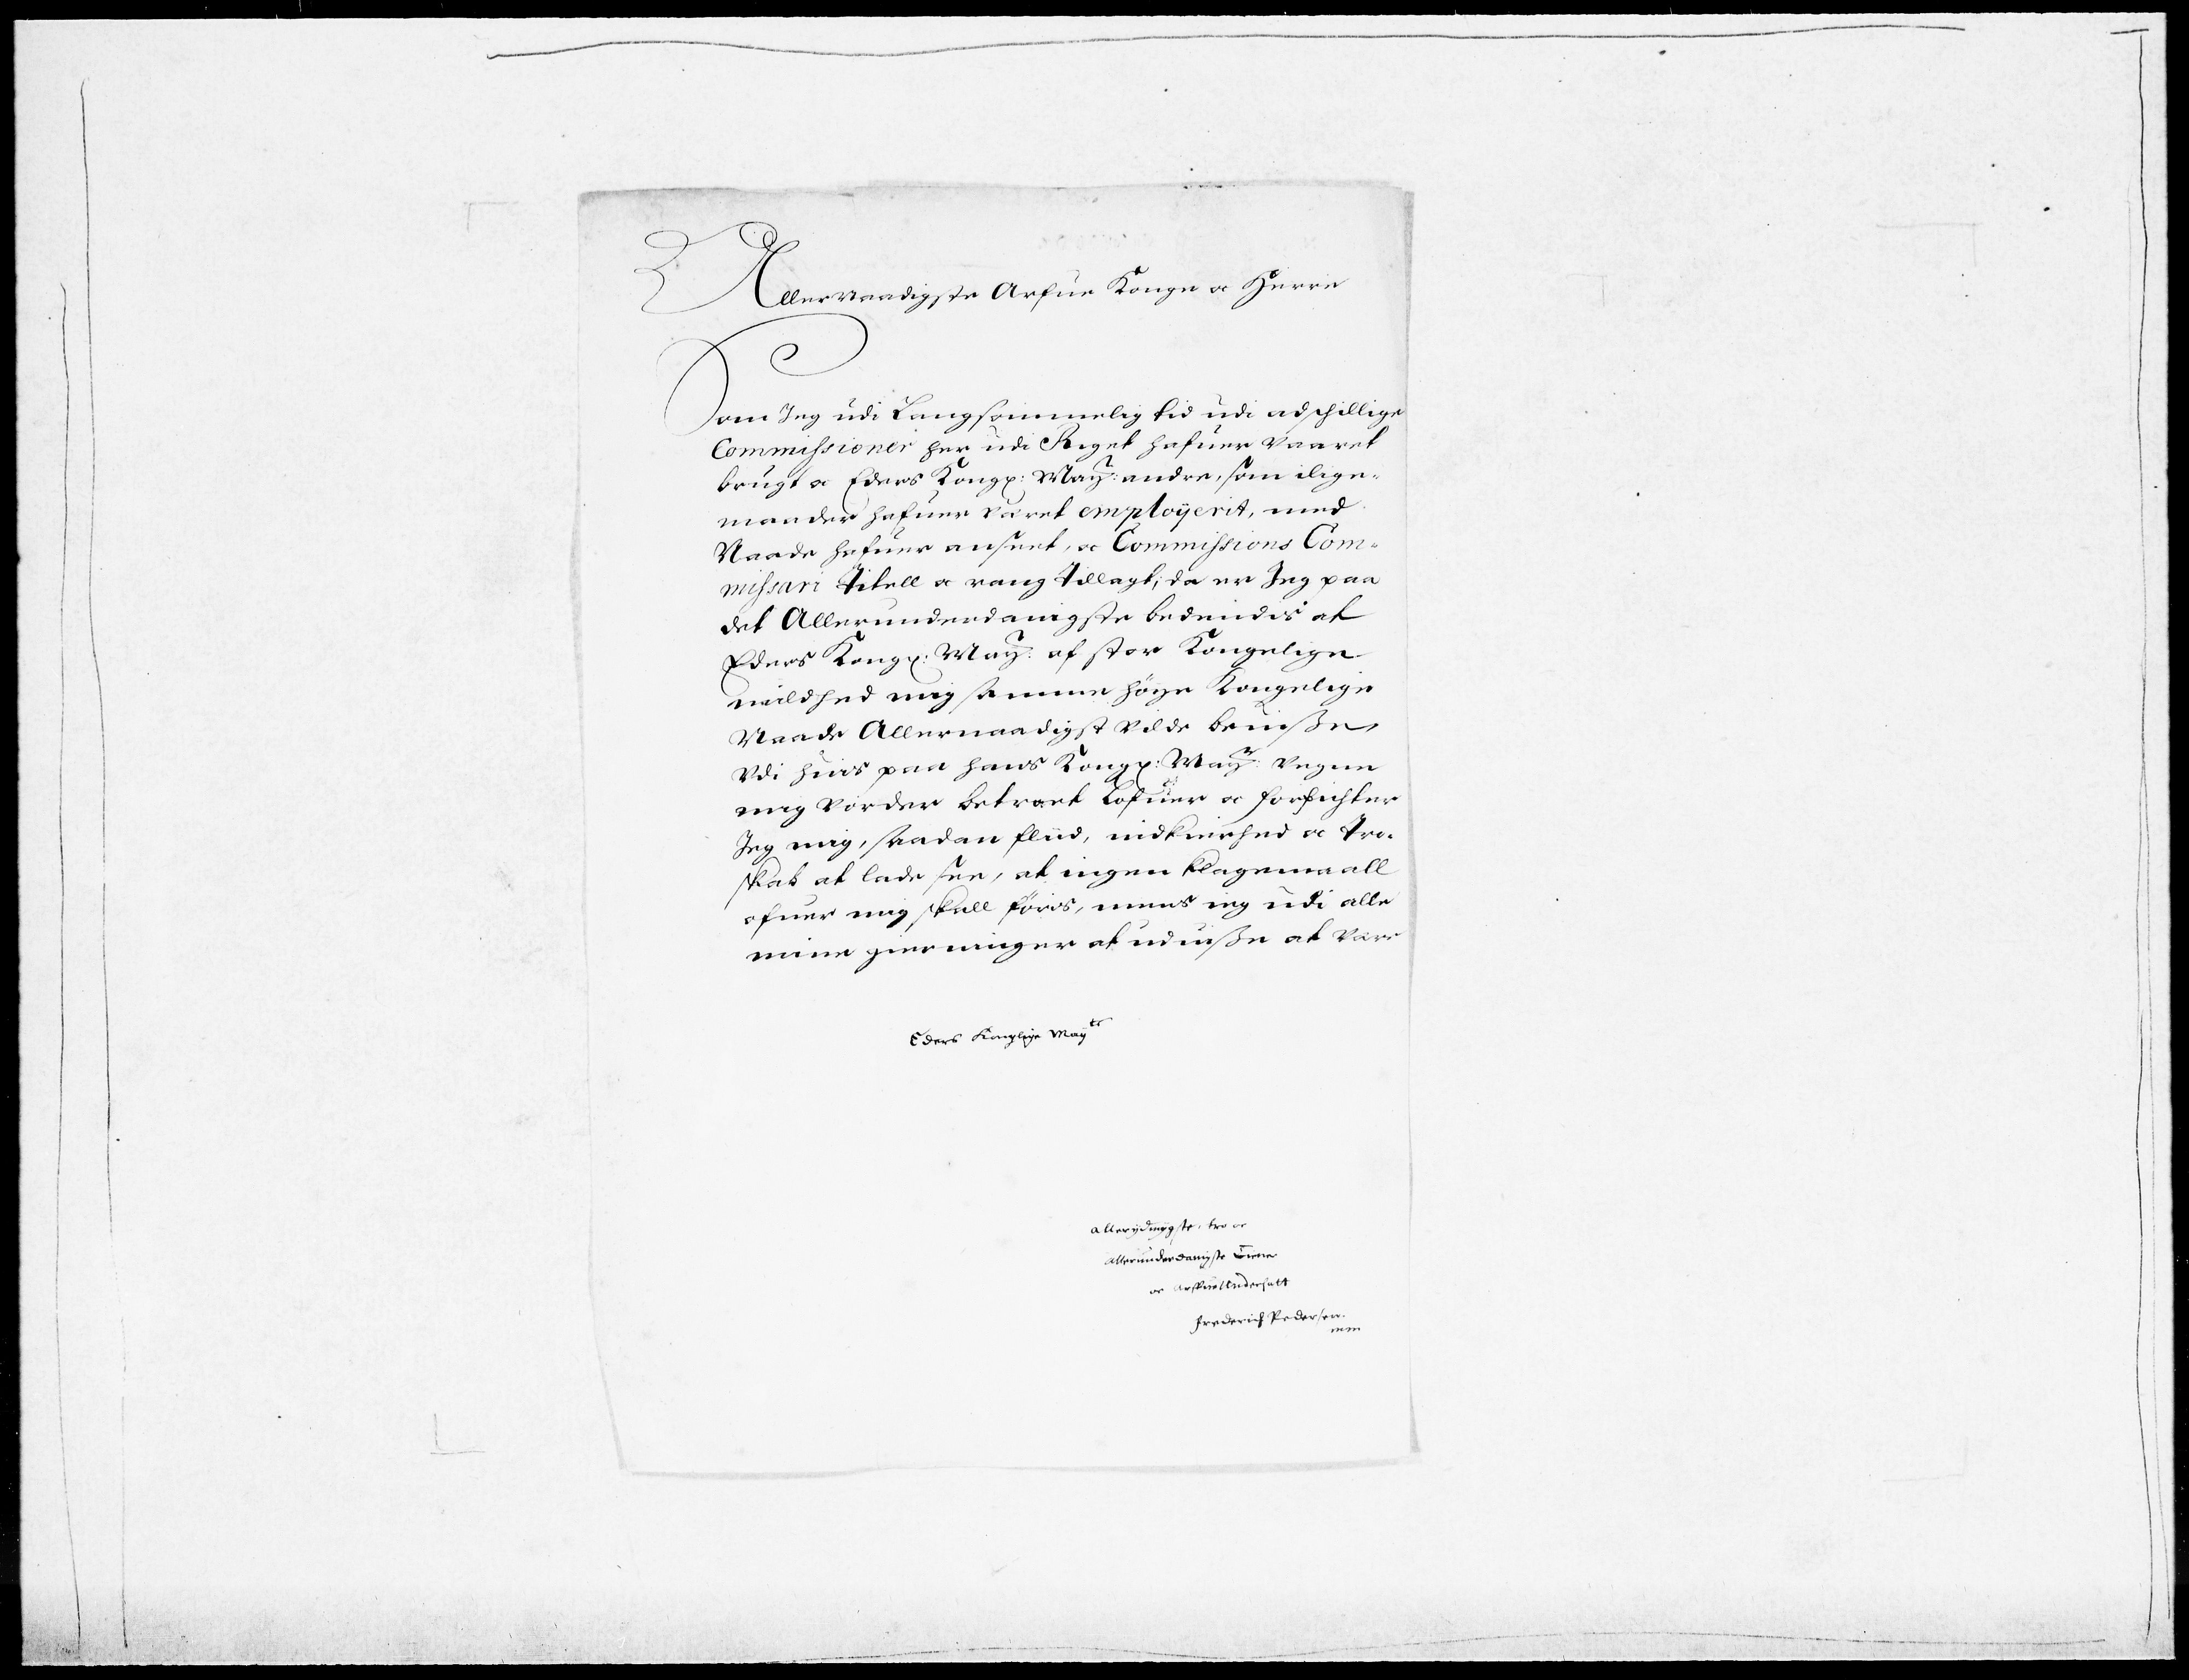 Allernaadigste Arfue Konge oc Herre
Som Jeg udi Langsommelig tid udi adschillige
Commissioner her udi Riget hafuer vaaret
brugt oc Eders Kongl: Maytt: andre, som ilige-
maader hafuer været employerit, med
Naade hafuer anseet, oc Commissions Com-
missari Titell oc rang Tillagt, da er Jeg paa
det Allerunderdanigste bedendis at
Eders Kongl: Maytt: af stor Kongelige
mildhed mig samme høye Kongelige
Naade Allernaadigst vilde beuiße,
Vdi huis paa hans Kongl: Maytt: vegne
mig vorder betroet Lofuer oc forplichter
Jeg mig, saadan fliid, nidkierhed oc Tro-
skab at lade see, at ingen klagemaall
ofuer mig skall føris, mens ieg udi alle
mine gierninger at uduiße at være
Eders Konglige Mayts
allerydmygste, tro oc
allerunderdanigste Tiener
oc arffue Undersatt
Frederich Pedersen.
mm